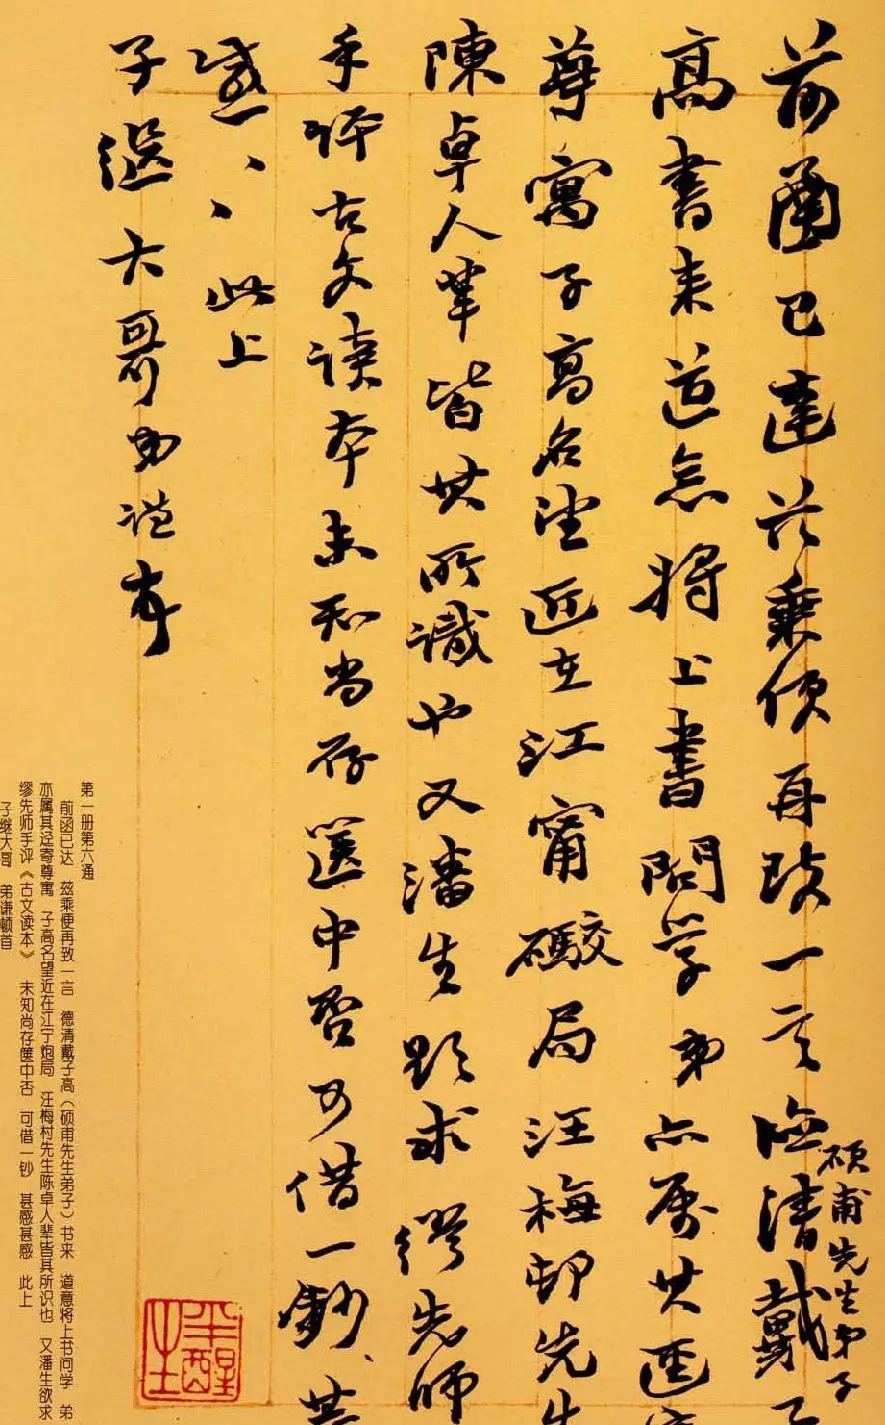 前圅已達茲乗便再致一言德清戴子
碩甫先生弟子
高書来道意將上書問学弟亦属其逕寄
尊寓子高名望近在江甯礮局汪梅邨先生
陳卓人輩皆其所識也又潘生欲求繆先師
手评古文读本未知尚存篋中否可借一鈔、甚
感〻此上
子继大哥弟谦頓首
半醒生
第一册第六通
前函已达 兹乘便再致一言 德清戴子高（硕甫先生弟子）书来 道意将上书问学 弟
亦属其迳寄尊寓 子高名望近在江宁炮局 汪梅村先生陈卓人辈皆其所识也 又潘生欲求
缪先师手评《古文读本》 未知尚存箧中否 可借一钞 甚感甚感 此上
子继大哥 弟谦顿首